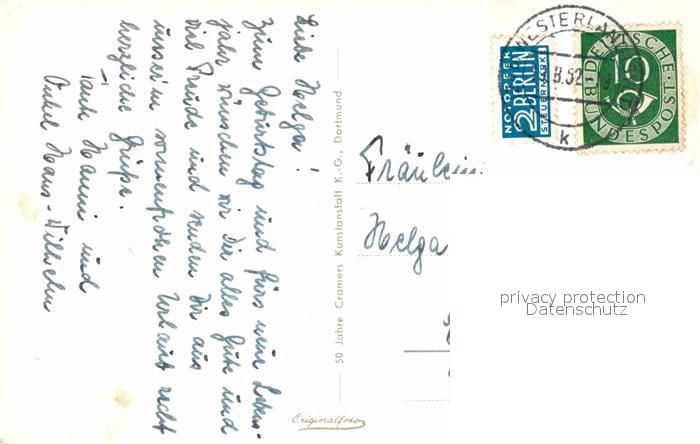 Liebe Helga!
Zum Geburtstag und fürs neue Lebens-
jahr wünschen wir Dir alles Gute und
viel Freude und senden Dir aus
unserm sonnenfrohen Urlaub recht
herzliche Grüße.
Tante Hanni und
Onkel Hans-Wilhelm
50 Jahre Cramers Kunstanstalt K.-G., Dortmund
Originalfoto
Fräulein
Helga
WESTERLAND
8.52
k
NOTOPFER
2 BERLIN
STEUERMARKE
DEUTSCHE
BUNDESPOST
10
privacy protection
Datenschutz